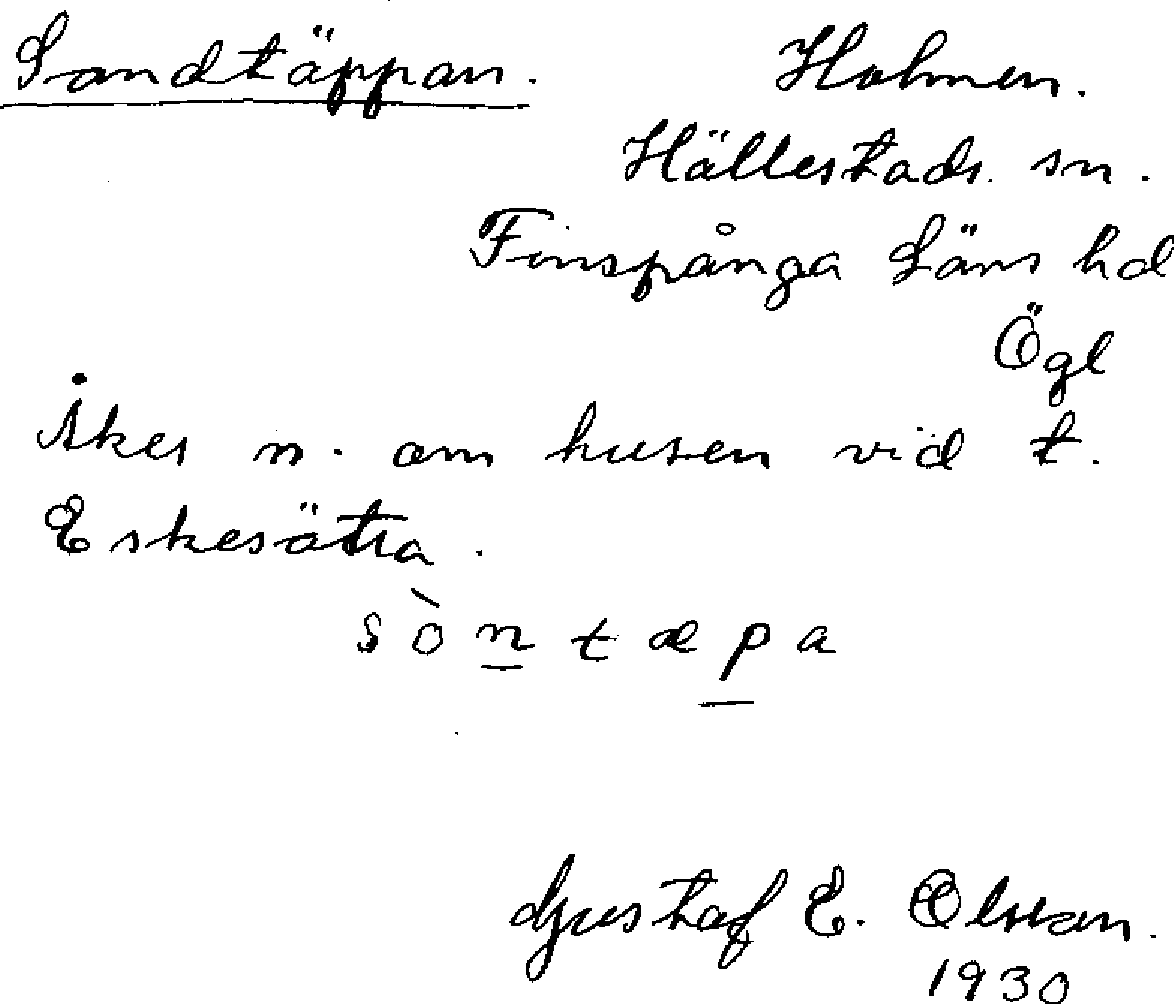 Sandtäppan. Holmen.
Hällestads. sn.
Finspånga Läns hd
Ögl
Åker n. om husen vid t.
Eskesätra.
s ò n t æ p a
Gustaf E. Olsson.
1930